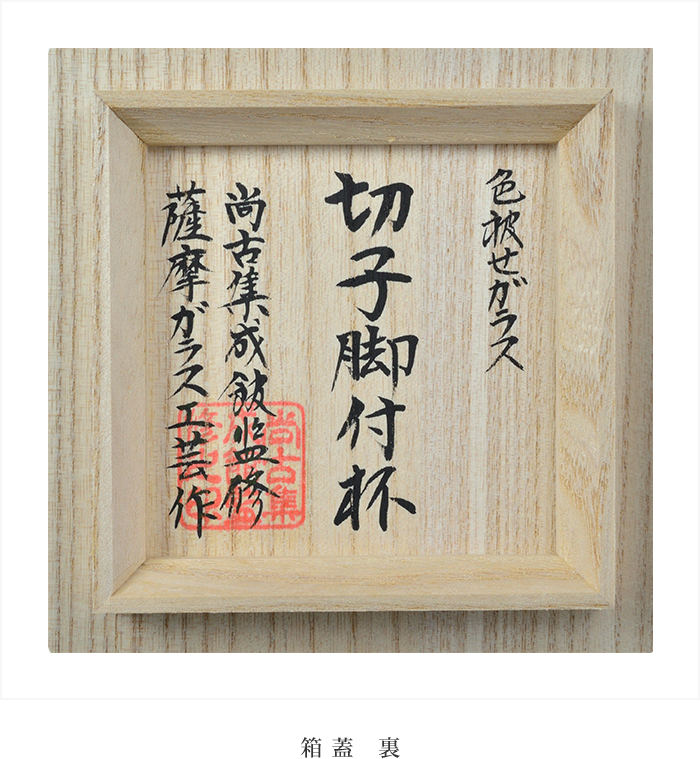 色被せガラス
切子脚付杯
尚古集成館監修
薩摩ガラス工芸作
尚古集
箱蓋 裏